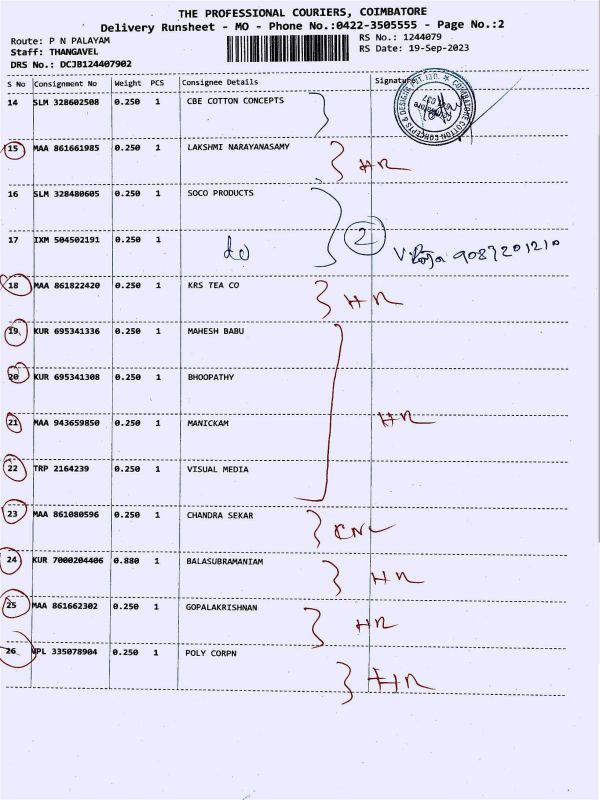 THE PROFESSIONAL COURIERS, COIMBATORE
Delivery Runsheet - MO - Phone No.:0422-3505555 - Page No.:2
Route: P N PALAYAM
Staff: THANGAVEL
DRS No.: DCJB124407902
RS No.: 1244079
RS Date: 19-Sep-2023
S No Consignment No Weight PCS Consignee Details Signature
14 SLM 328602508 0.250 1 CBE COTTON CONCEPTS
15 MAA 861661985 0.250 1 LAKSHMI NARAYANASAMY HR
16 SLM 328480605 0.250 1 SOCO PRODUCTS
17 IXM 504502191 0.250 1 do 2 9087201210
18 MAA 861822420 0.250 1 KRS TEA CO HR
19 KUR 695341336 0.250 1 MAHESH BABU
20 KUR 695341308 0.250 1 BHOOPATHY
21 MAA 943659850 0.250 1 MANICKAM HR
22 TRP 2164239 0.250 1 VISUAL MEDIA
23 MAA 861080596 0.250 1 CHANDRA SEKAR
24 KUR 7000204406 0.880 1 BALASUBRAMANIAM HR
25 MAA 861662302 0.250 1 GOPALAKRISHNAN HR
26 VPL 335078904 0.250 1 POLY CORPN HR